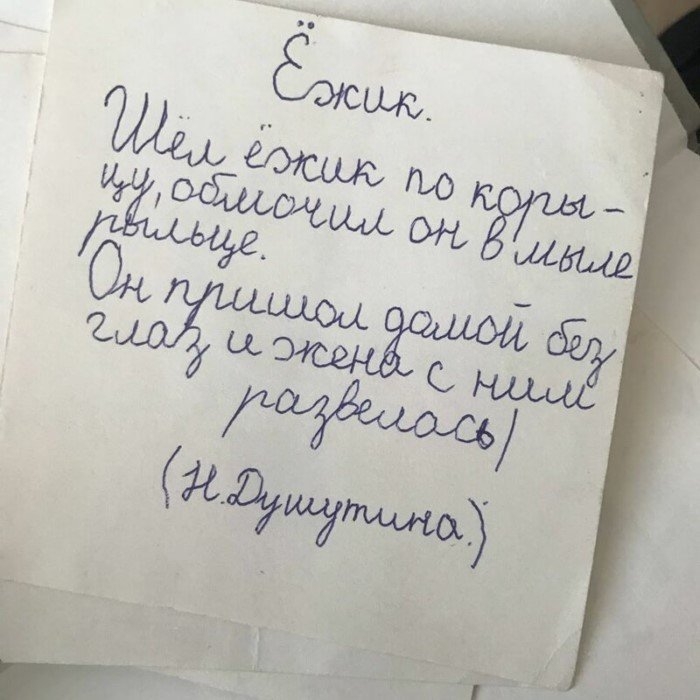 Ёжик.
Шёл ёжик по коры-
цу, обмочил он в мыле
рыльце.
Он пришол домой без
глаз и жена с ним
развелась!
(Н.Душутина.)